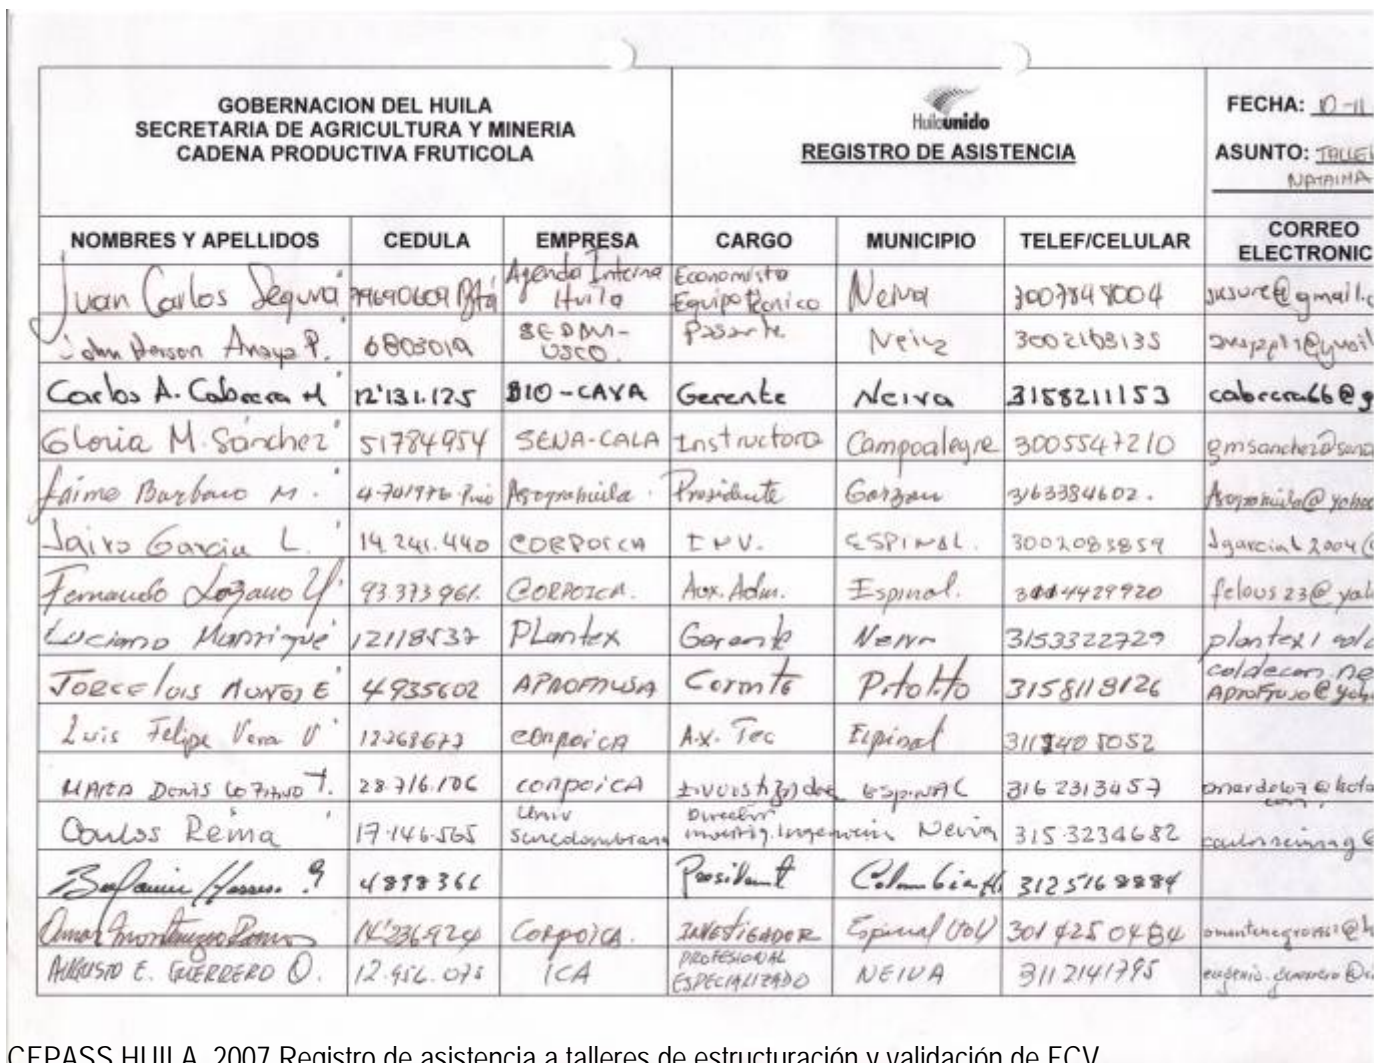 GOBERNACION DEL HUILA
SECRETARIA DE AGRICULTURA Y MINERIA
CADENA PRODUCTIVA FRUTICOLA
Huilaunido
REGISTRO DE ASISTENCIA
FECHA: 10-11
ASUNTO: TALLER
NATAIMA
NOMBRES Y APELLIDOS CEDULA EMPRESA CARGO MUNICIPIO TELEF/CELULAR CORREO ELECTRONIC
Juan Carlos Segura 79690609 Btá Agenda Interna Huila Economista Equipo técnico Neiva 3007848004
John Anaya P. 6803019 USCO. Pasante Neiva 3002103135
Carlos A. Cabrera M 12'131.125 BIO-CAVA Gerente Neiva 3158211153 cabrera66@g
Gloria M. Sánchez 51784954 SENA-CALA Instructora Campoalegre 3005547210 gmsanchez@sena
Jaime Barbaro M. Asoprohuila Presidente Garzon 3163384602. Asoprohuila@yahoo
Jairo Garcia L. 14.241.440 CORPOICA INV. ESPINAL. 3002083859 Jgarcial2004@
Fernando Lozano 93.373.961. CORPOICA. Aux. Adm. Espinal. 3004429920 felous23@yah
Luciano Manrique 12118537 PLantex Gerente Neiva 3153322729 plantex1
Luis E 4935602 Gerente Pitalito 3158119126 coldecon.ne
Luis Felipe Vera V 12268677 corpoica Ax. Tec Espinal
Denis T. 28.716.106 corpoicA Investigador espinal 316 2313457
Carlos Reina 17.146.565 Univ Surcolombiana Director investig. Ingenieria Neiva 315.3234682
4898366 Presidente Colombia H 3125168884
Omar Montenegro 14'236924 Corpoica. INVESTIGADOR Espinal (Tol) 301 4250484
AUGUSTO E. GUERRERO O. 12.956.075 ICA PROFESIONAL ESPECIALIZADO NEIVA 3112141795 eugenio.guerrero@i
CEPASS HUILA, 2007 Registro de asistencia a talleres de estructuración y validación de ECV